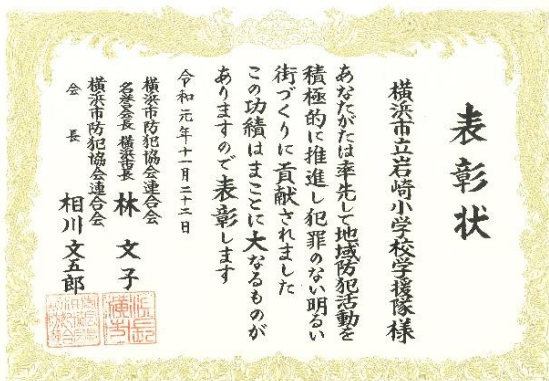 表彰状
横浜市立岩崎小学校学援隊様
あなたがたは率先して地域防犯活動を
積極的に推進し犯罪のない明るい
街づくりに貢献されました
この功績はまことに大なるものが
ありますので表彰します
令和元年十一月二十二日
横浜市防犯協会連合会
名誉会長 横浜市長 林 文子
横浜市防犯協会連合会
会長 相川文五郎